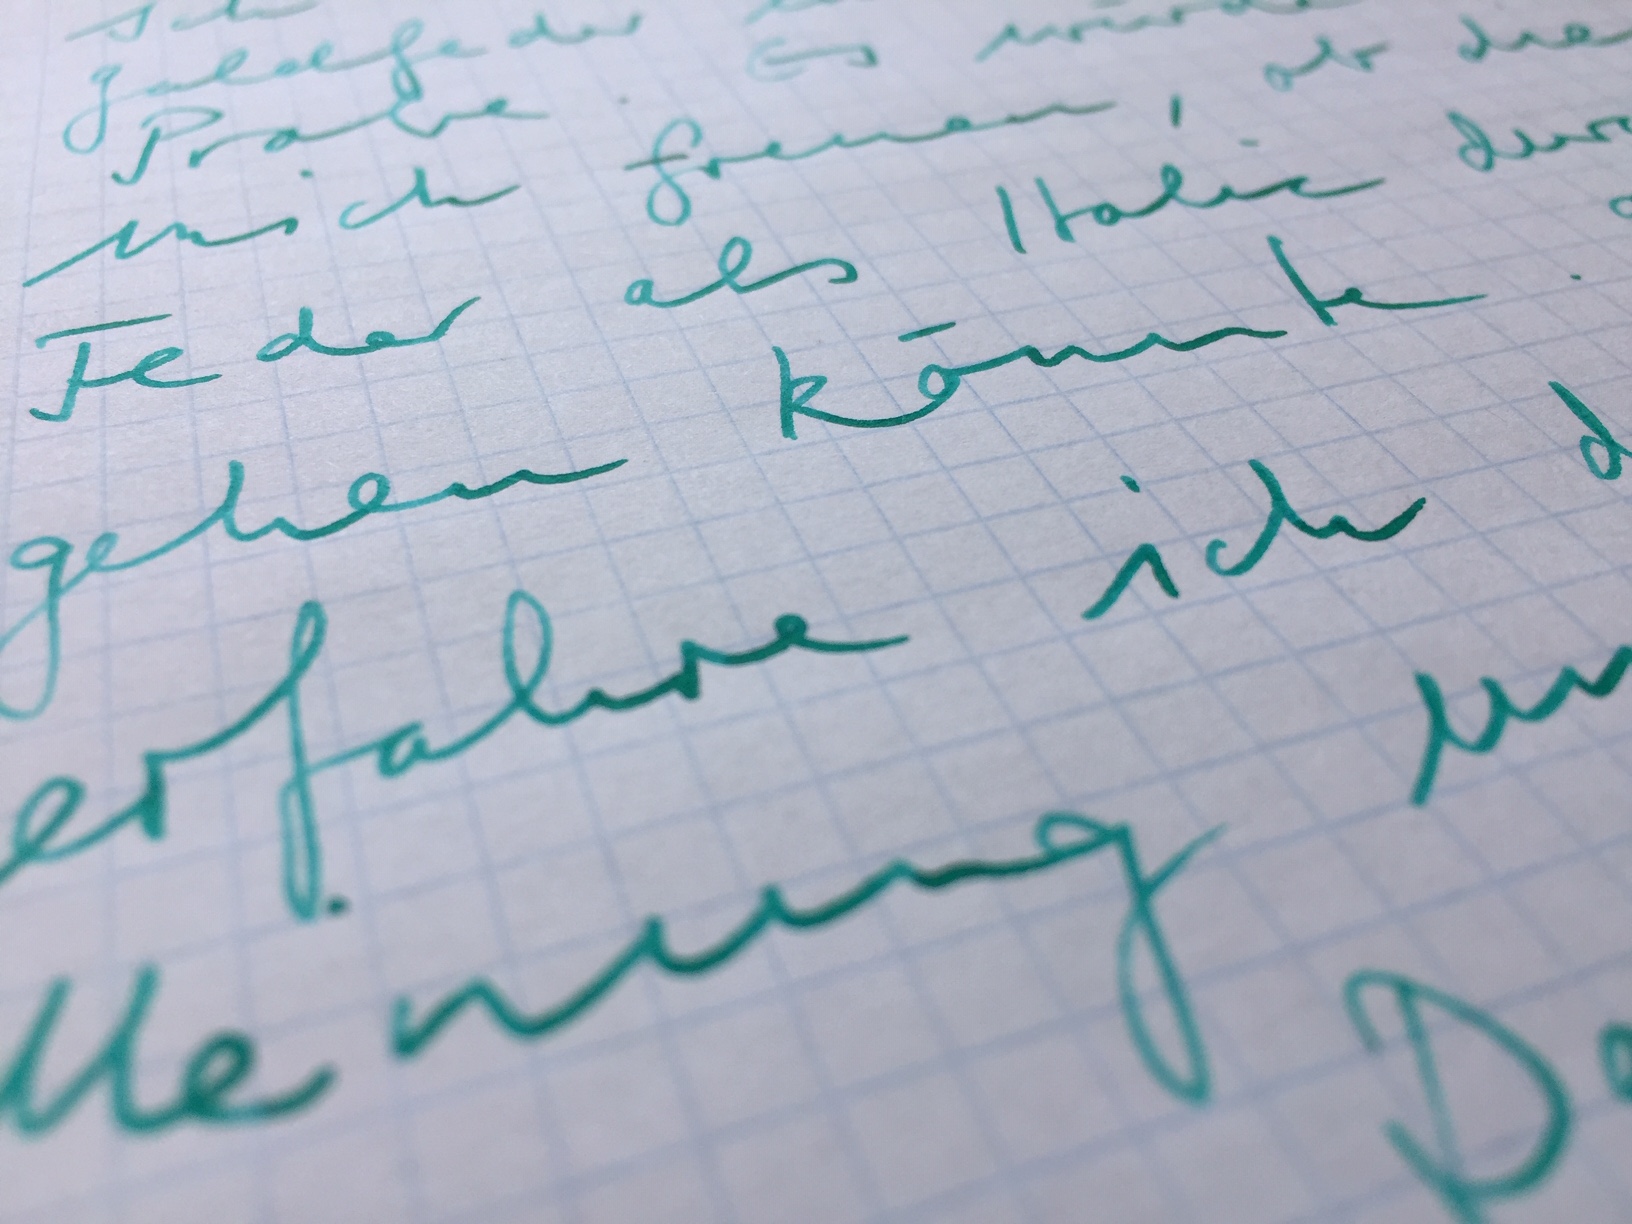 Ich
Goldfeder Es würde
Probe. ob die
mich freuen,
Feder als Italic durch
gehen könnte.
erfahre ich d
Meinung un
De